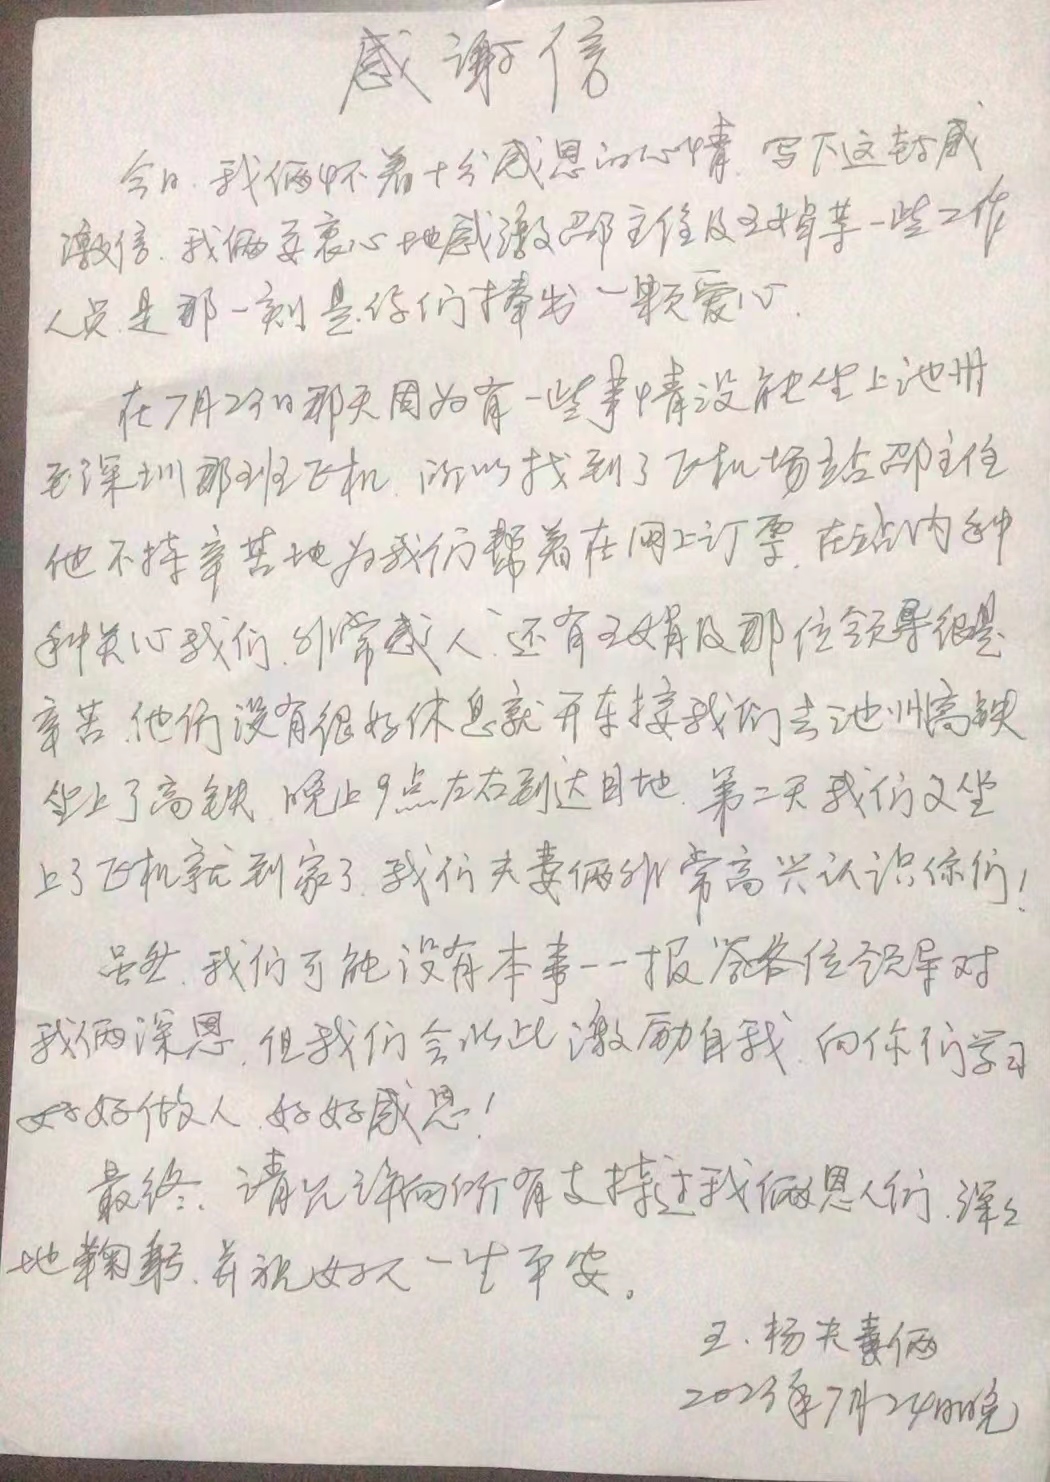 感谢信
今日、我俩怀着十分感恩的心情、写下这封感
激信、我俩要衷心地感激邵主任及王娟等一些工作
人员、是那一刻是你们捧出一颗爱心、
在7月23日那天因为有一些事情没能坐上池州
至深圳那班飞机、所以找到了飞机场主站邵主任
他不持辛苦地为我们帮着在网上订票、在站内种
种关心我们、非常感人、还有王娟及那位领导很是
辛苦、他们没有很好休息就开车接我们去池州高铁
坐上了高铁、晚上9点左右到达目地、第二天我们又坐
上了飞机就到家了、我们夫妻俩非常高兴认识你们!
虽然、我们可能没有本事一一报答各位领导对
我俩深恩、但我们会以此激励自我、向你们学习
好好做人、好好感恩!
最终、请允许向所有支持过我俩恩人们、深深
地鞠躬、并祝好人一生平安。
王、杨夫妻俩
2023年7月24日晚